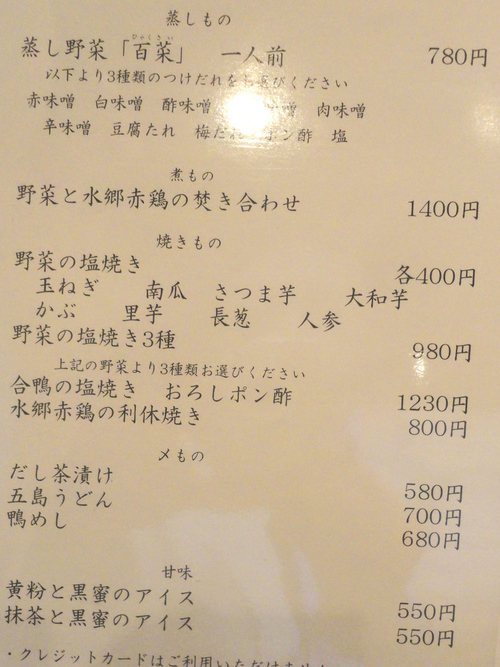 蒸しもの
ひゃくさい
蒸し野菜「百菜」 一人前 780円
以下より3種類のつけだれをお選びください
赤味噌 白味噌 酢味噌 味噌 肉味噌
辛味噌 豆腐たれ 梅だ ポン酢 塩
煮もの
野菜と水郷赤鶏の焚き合わせ 1400円
焼きもの
野菜の塩焼き 各400円
玉ねぎ 南瓜 さつま芋 大和芋
かぶ 里芋 長葱 人参
野菜の塩焼き3種 980円
上記の野菜より3種類お選びください
合鴨の塩焼き おろしポン酢 1230円
水郷赤鶏の利休焼き 800円
〆もの
だし茶漬け 580円
五島うどん 700円
鴨めし 680円
甘味
黄粉と黒蜜のアイス 550円
抹茶と黒蜜のアイス 550円
・クレジットカードはご利用いただけません